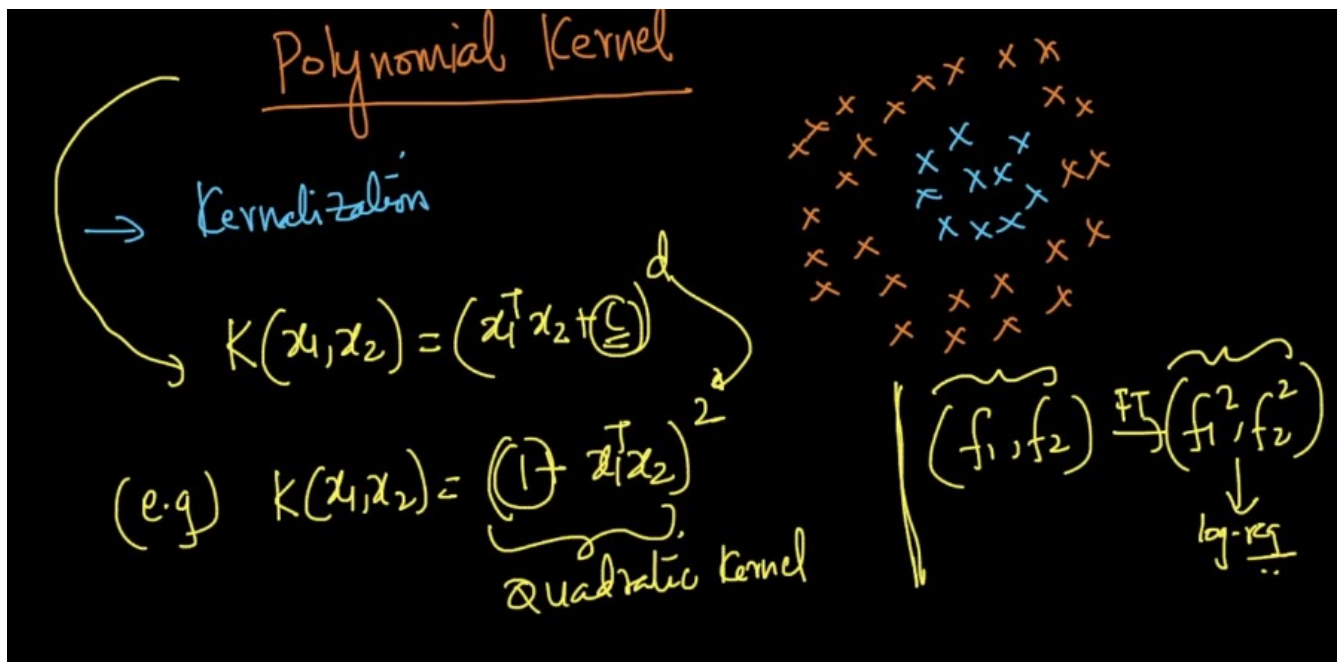 Polynomial Kernel
→ Kernelization
K(x₁,x₂) = (x₁ᵀx₂+c)ᵈ
(e.g) K(x₁,x₂) = (1+ x₁ᵀx₂)²
Quadratic Kernel
(f₁,f₂) FT→ (f₁²,f₂²)
↓
log-reg